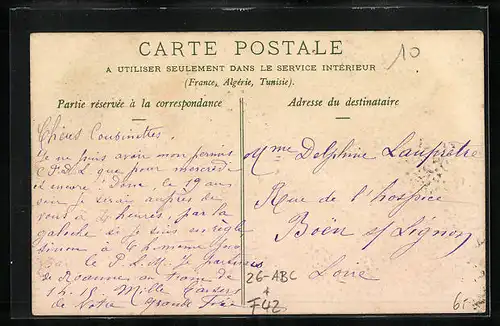 CARTE POSTALE
A UTILISER SEULEMENT DANS LE SERVICE INTÉRIEUR
(France, Algérie, Tunisie).
10
Partie réservée à la correspondance
Adresse du destinataire
Chères
Je ne puis avoir mon permis
que pour mercredi
et encore. Donc le 19 au
soir je serai auprès de
vous à heures, par la
galoche si je suis en règle
sinon à 6 h même jour
par le P.L.M. Je
de Roanne au train de
1 h 18. Mille baisers
de Votre Grande
Mme Delphine
Rue de l'hospice
Boën s/ Lignon
Loire
26-ABC
F42